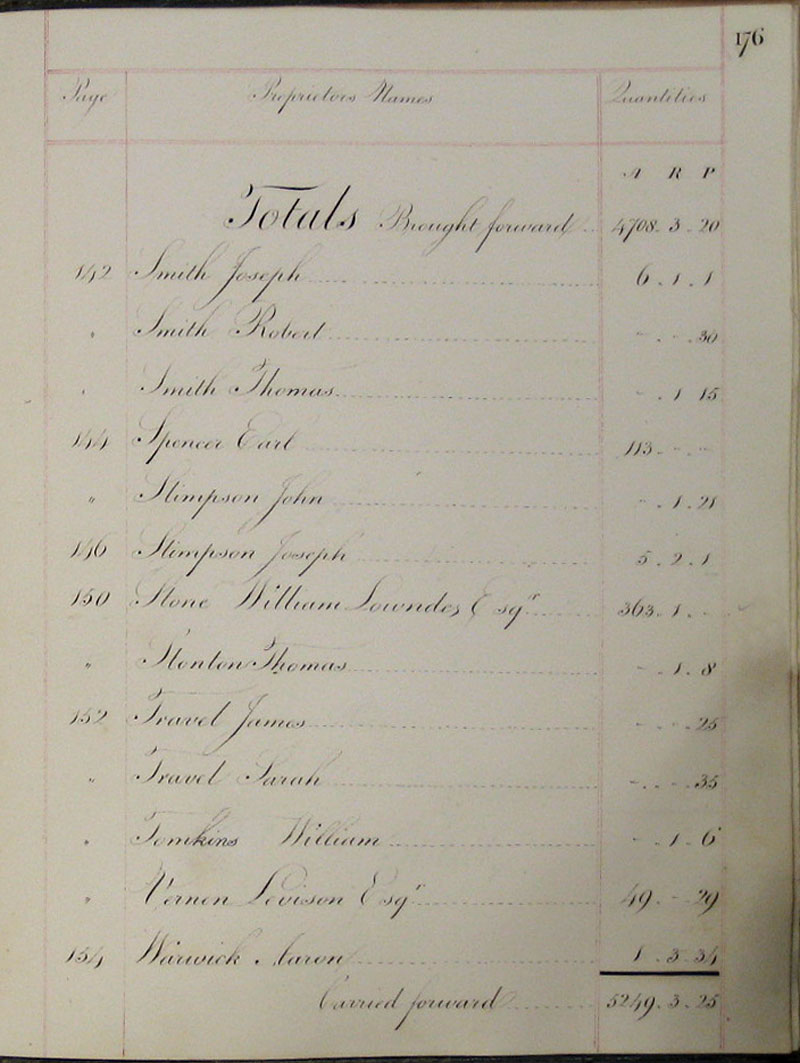 176
Page Proprietors Names Quantities
A R P
Totals Brought forward 4708 . 3 . 20
142 Smith Joseph 6 . 1 . 1
" Smith Robert - . - . 30
" Smith Thomas - . 1 15
144 Spencer Earl 113 . - . -
" Stimpson John - . 1 . 21
146 Stimpson Joseph 5 . 2 . 1
150 Stone William Lowndes Esqr 363 . 1 . -
" Stonton Thomas - . 1 . 8
152 Travel James - . - . 25
" Travel Sarah - . - . 35
" Tomkins William - . 1 . 6
" Vernon Levison Esqr 49 . - . 29
154 Warwick Aaron 1 . 3 . 34
Carried forward 5249 . 3 . 25